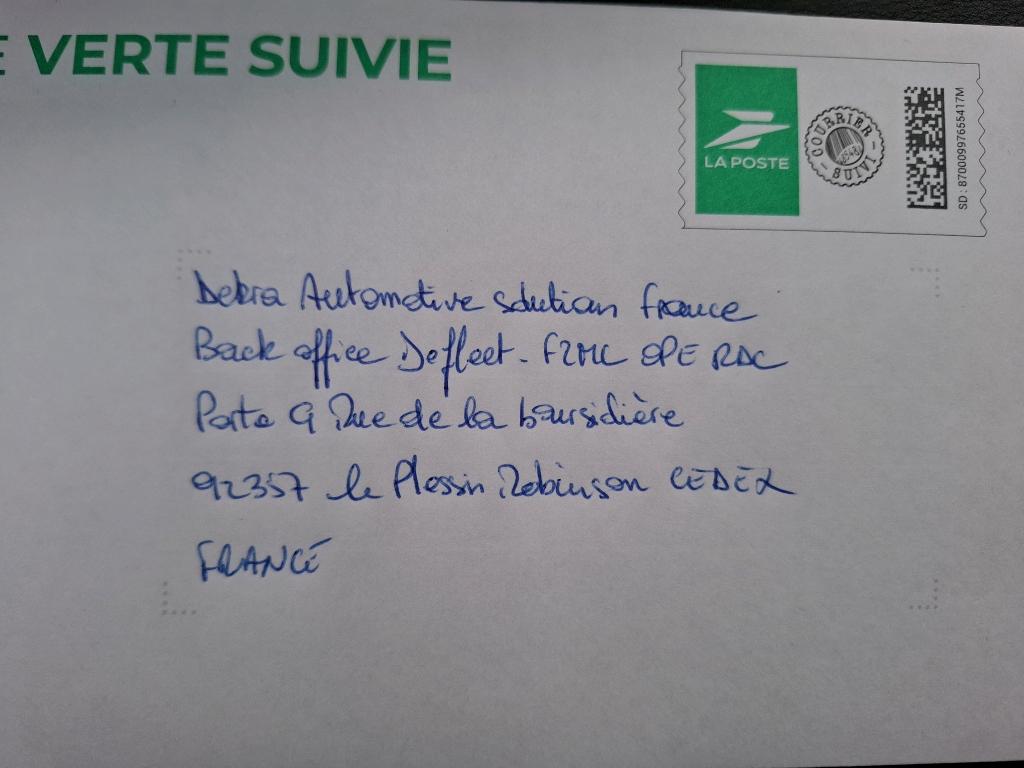 E VERTE SUIVIE
LA POSTE
COURRIER SUIVI
SD : 87000997655417M
Dekra Automotive solution france
Back office Defleet - F2ML OPE RAC
Porte 9 Rue de la boursidière
92357 le Plessis Robinson CEDEX
FRANCE